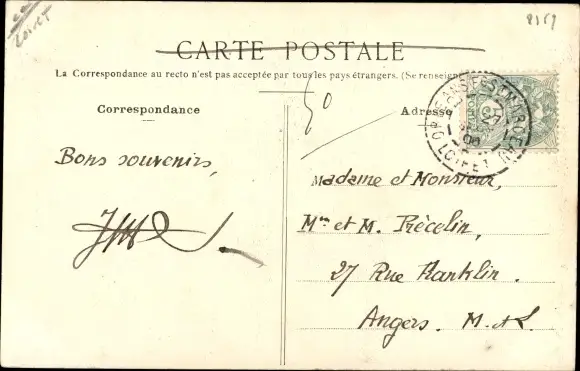 Loiret
8159
CARTE POSTALE
La Correspondance au recto n'est pas acceptée par tous les pays étrangers. (Se renseign
Correspondance
Adresse
50
Bons souvenirs,
Madame et Monsieur,
Mme et M. Précelin,
27 Rue Franklin.
Angers. M. et L.